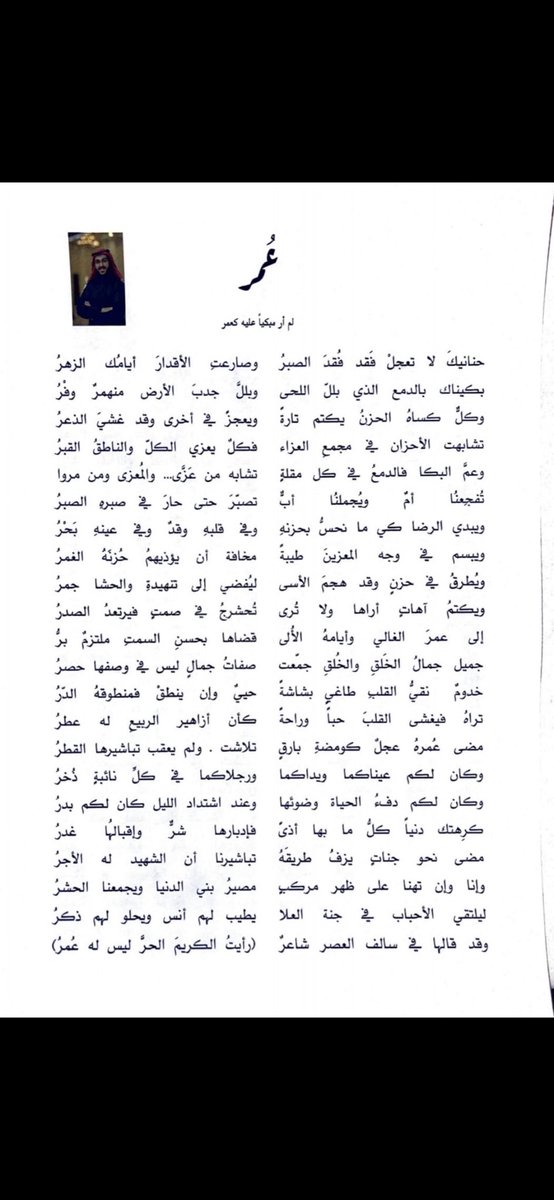 عُمر
لم أر مبكياً عليه كعمر
حنانيكَ لا تعجلْ فَقد فُقدَ الصبرُ وصارعتِ الأقدارَ أيامُك الزهرُ
بكيناك بالدمع الذي بللّ اللحى وبللَّ جدبَ الأرض منهمرٌ وفْرُ
وكلٌّ كساهُ الحزنُ يكتم تارةً ويعجزُ في أخرى وقد غشيَ الذعرُ
تشابهت الأحزان في مجمعِ العزاء فكلٌ يعزي الكلّ والناطقُ القبرُ
وعمَّ البكا فالدمعُ في كل مقلةٍ تشابه من عَزَّى... والمُعزى ومن مروا
تُفجعنُا أمٌ ويُجملنُا أبٌ تصبّرَ حتى حارَ في صبرهِ الصبرُ
ويبدي الرضا كي ما نحسُّ بحزنهِ وفي قلبهِ وقدٌ وفي عينهِ بَحْرُ
ويبسم في وجه المعزينَ طيبةً مخافة أن يؤذيهمُ حُزنَهُ الغمرُ
ويُطرقُ في حزنٍ وقد هجمَ الأسى ليُفضي إلى تنهيدةٍ والحشا جمرُ
ويكتمُ آهاتٍ أراها ولا تُرى تُحشرجُ في صمتٍ فيرتعدُ الصدرُ
إلى عمرَ الغالي وأيامهُ الأُلى قضاها بحسنِ السمتِ ملتزمٌ برُّ
جميل جمالُ الخَلقِ والخُلقِ جمّعت صفاتُ جمالٍ ليس في وصفها حصرُ
خدومٌ نقيُّ القلبِ طاغي بشاشةً حييٌ وإن ينطقْ فمنطوقهُ الدّرُ
تراهُ فيغشى القلبَ حباً وراحةً كأن أزاهير الربيعِ له عطرُ
مضى عُمرهُ عجلٌ كومضةِ بارقٍ تلاشت . ولم يعقب تباشيرها القطرُ
وكان لكم عيناكما ويداكما ورجلاكما في كلِّ نائبةٍ ذُخرُ
وكان لكم دفءُ الحياة وضوئها وعند اشتداد الليل كان لكم بدرُ
كرِهتك دنياً كلُّ ما بها أذىً فإدبارها شرٌّ وإقبالُها غدرُ
مضى نحو جناتٍ يزفُ طريقَهُ تباشيرنا أن الشهيد له الأجرُ
وإنا وإن تهنا على ظهر مركبٍ مصيرُ بني الدنيا ويجمعنا الحشرُ
ليلتقي الأحباب في جنة العلا يطيب لهم أنس ويحلو لهم ذكرُ
وقد قالها في سالف العصر شاعرٌ (رأيتُ الكريمَ الحرَّ ليس له عُمرُ)